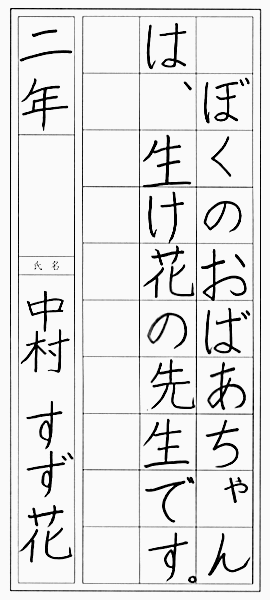 ぼくのおばあちゃん
は、生け花の先生です。
二年
氏名
中村 すず花